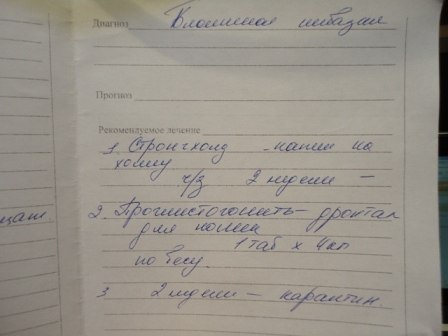 Диагноз Блошиная инвазия
Прогноз
Рекомендуемое лечение
1. Стронгхолд - капли на
холку
ч/з 2 недели -
2. Проглистогонить - дронтал
для кошек
1 таб х 4 кг
по весу.
3 2 недели - карантин.